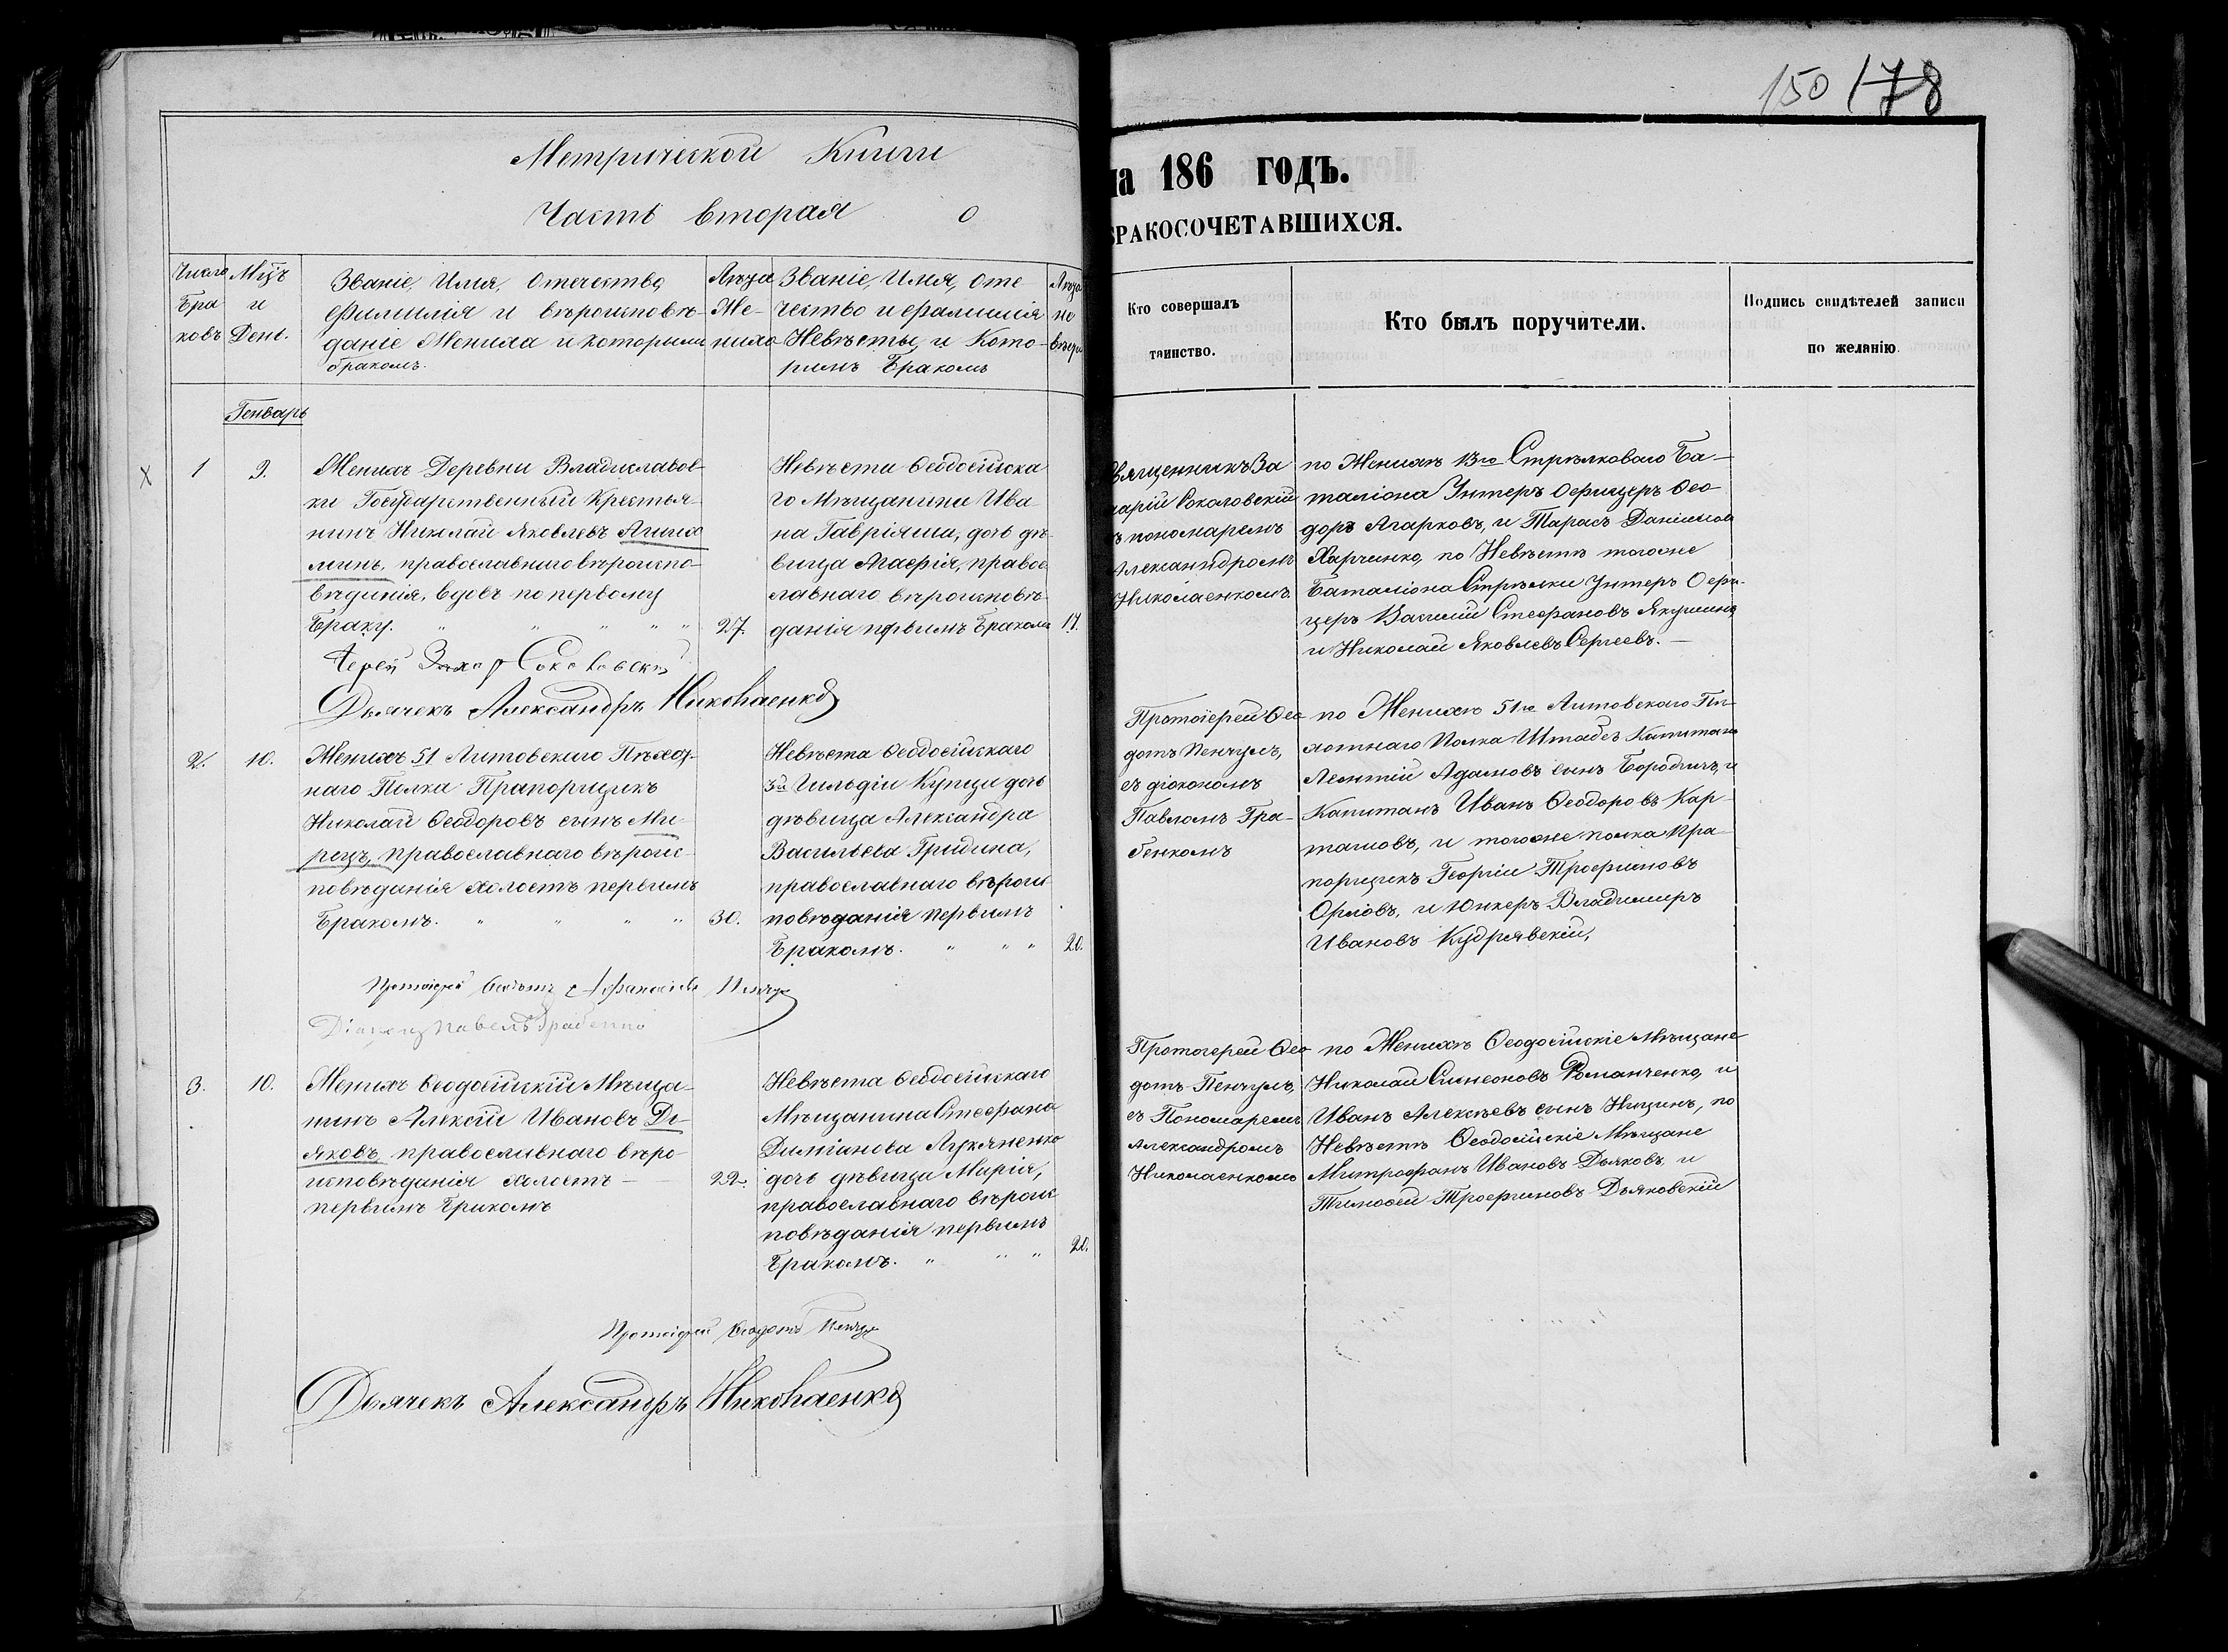 150 178
Метрической Книги
Часть вторая о
на 186 ГОДЪ.
БРАКОСОЧЕТАВШИХСЯ.
Число Бра ковъ
Мцъ и День.
Званіе, Имя, Отечество,
Фамилія и вѣроисповѣ-
даніе Жениха и которымъ
бракомъ.
Лѣта Же- ниха
Званіе, Имя, Оте
чество и фамилія
Невѣсты, и Кото-
рымъ Бракомъ
Лѣта не вѣсты
Кто совершалъ
таинство.
Кто былъ поручители.
Подпись свидѣтелей записи
по желанію.
Генварь
1
9.
Женихъ Деревни Владиславов-
ки Государственный Крестья-
нинъ Николай Яковлевъ
православнаго вѣроиспо-
вѣданія, вдовъ по первому
Браку.
27.
Невѣста Ѳеодосійска
го Мѣщанина Ива
на Гавріяша, дочь дѣ-
вица Марфія, правос
лавнаго вѣроисповѣ-
данія первымъ Бракомъ
17.
Священникъ За
харій Соколовскій
съ пономаремъ
Александромъ
Николаенкомъ.
по Женихѣ 13го Стрѣлковаго Ба-
таліона Унтеръ Офицеръ Ѳео
доръ Агарковъ, и Тарасъ Даніиловъ
Харченко, по Невѣстѣ тогоже
Баталіона Стрѣлки Унтеръ Офи-
церъ Василій Стефановъ Якушинъ,
и Николай Яковлевъ Сергеевъ.-
Іерей Захар Соколовскій
Дьячекъ Александръ Николаенко
2.
10.
Женихъ 51 Литовскаго Пѣхот-
наго Полка Прапорщикъ
Николай Ѳеодоровъ сынъ Ми-
рецъ, православнаго вѣроис-
повѣданія холостъ первымъ
Бракомъ.
30.
Невѣста Ѳеодосійскаго
3й Гильдіи Купца дочь
дѣвица Александра
Васильева Гридина,
православнаго вѣроис
повѣданія первымъ
Бракомъ.
20.
Протоіерей Ѳео
дотъ Пенчулъ,
съ діакономъ
Павломъ Гра-
бенкомъ
по Женихѣ 51го Литовскаго Пѣ-
хотнаго Полка Штабсъ Капитанъ
Леонтій Адамовъ сынъ Бородичъ, и
Капитанъ Иванъ Ѳеодоровъ Кар-
ташовъ, и тогоже полка Пра-
порщикъ Георгіи Трофимовъ
Орловъ, и Юнкеръ Владимиръ
Ивановъ Кудрявскій,
Протоіерей Ѳеодотъ Афанасіевъ Пенчулъ
Діаконъ Павелъ Грабенко
3.
10.
Женихъ Ѳеодосійскій Мѣща-
нинъ Алексій Ивановъ Дь-
яковъ, православнаго вѣро-
исповѣданія холостъ -
первымъ Бракомъ
22.
Невѣста Ѳеодосійскаго
Мѣщанина Стефана
Диміанова Лукяненко
дочь дѣвица Марія,
православнаго вѣроис
повѣданія первымъ
Бракомъ.
20.
Протоіерей Ѳео
дотъ Пенчулъ,
съ Пономаремъ
Александромъ
Николаенкомъ
по Женихѣ Ѳеодосійскіе Мѣщане
Николай Симеоновъ Романченко, и
Иванъ Алексѣевъ сынъ Ницинъ, по
Невѣстѣ Ѳеодосійскіе Мѣщане
Митрофанъ Ивановъ Дьяковъ, и
Тимофей Трофимовъ Дьяковскій
Протоіерей Ѳеодотъ Пенчулъ
Дьячекъ Александръ Николаенко